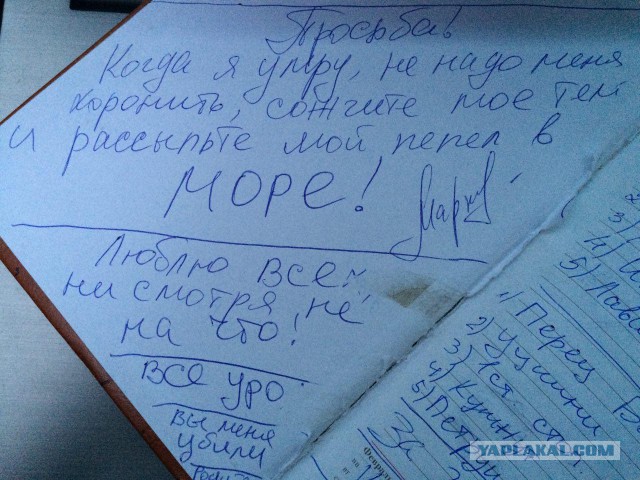 Просьба!
Когда я умру, не надо меня
хоронить, сожгите мое тел
и рассыпьте мой пепел в
МОРЕ!
Люблю всех
ни смотря не
на что!
все уро
вы меня
убили
3)
4)
5) Лавр
1) Перец
2)
3)
4)
5) Петруш
За
YAPLAKAL.COM